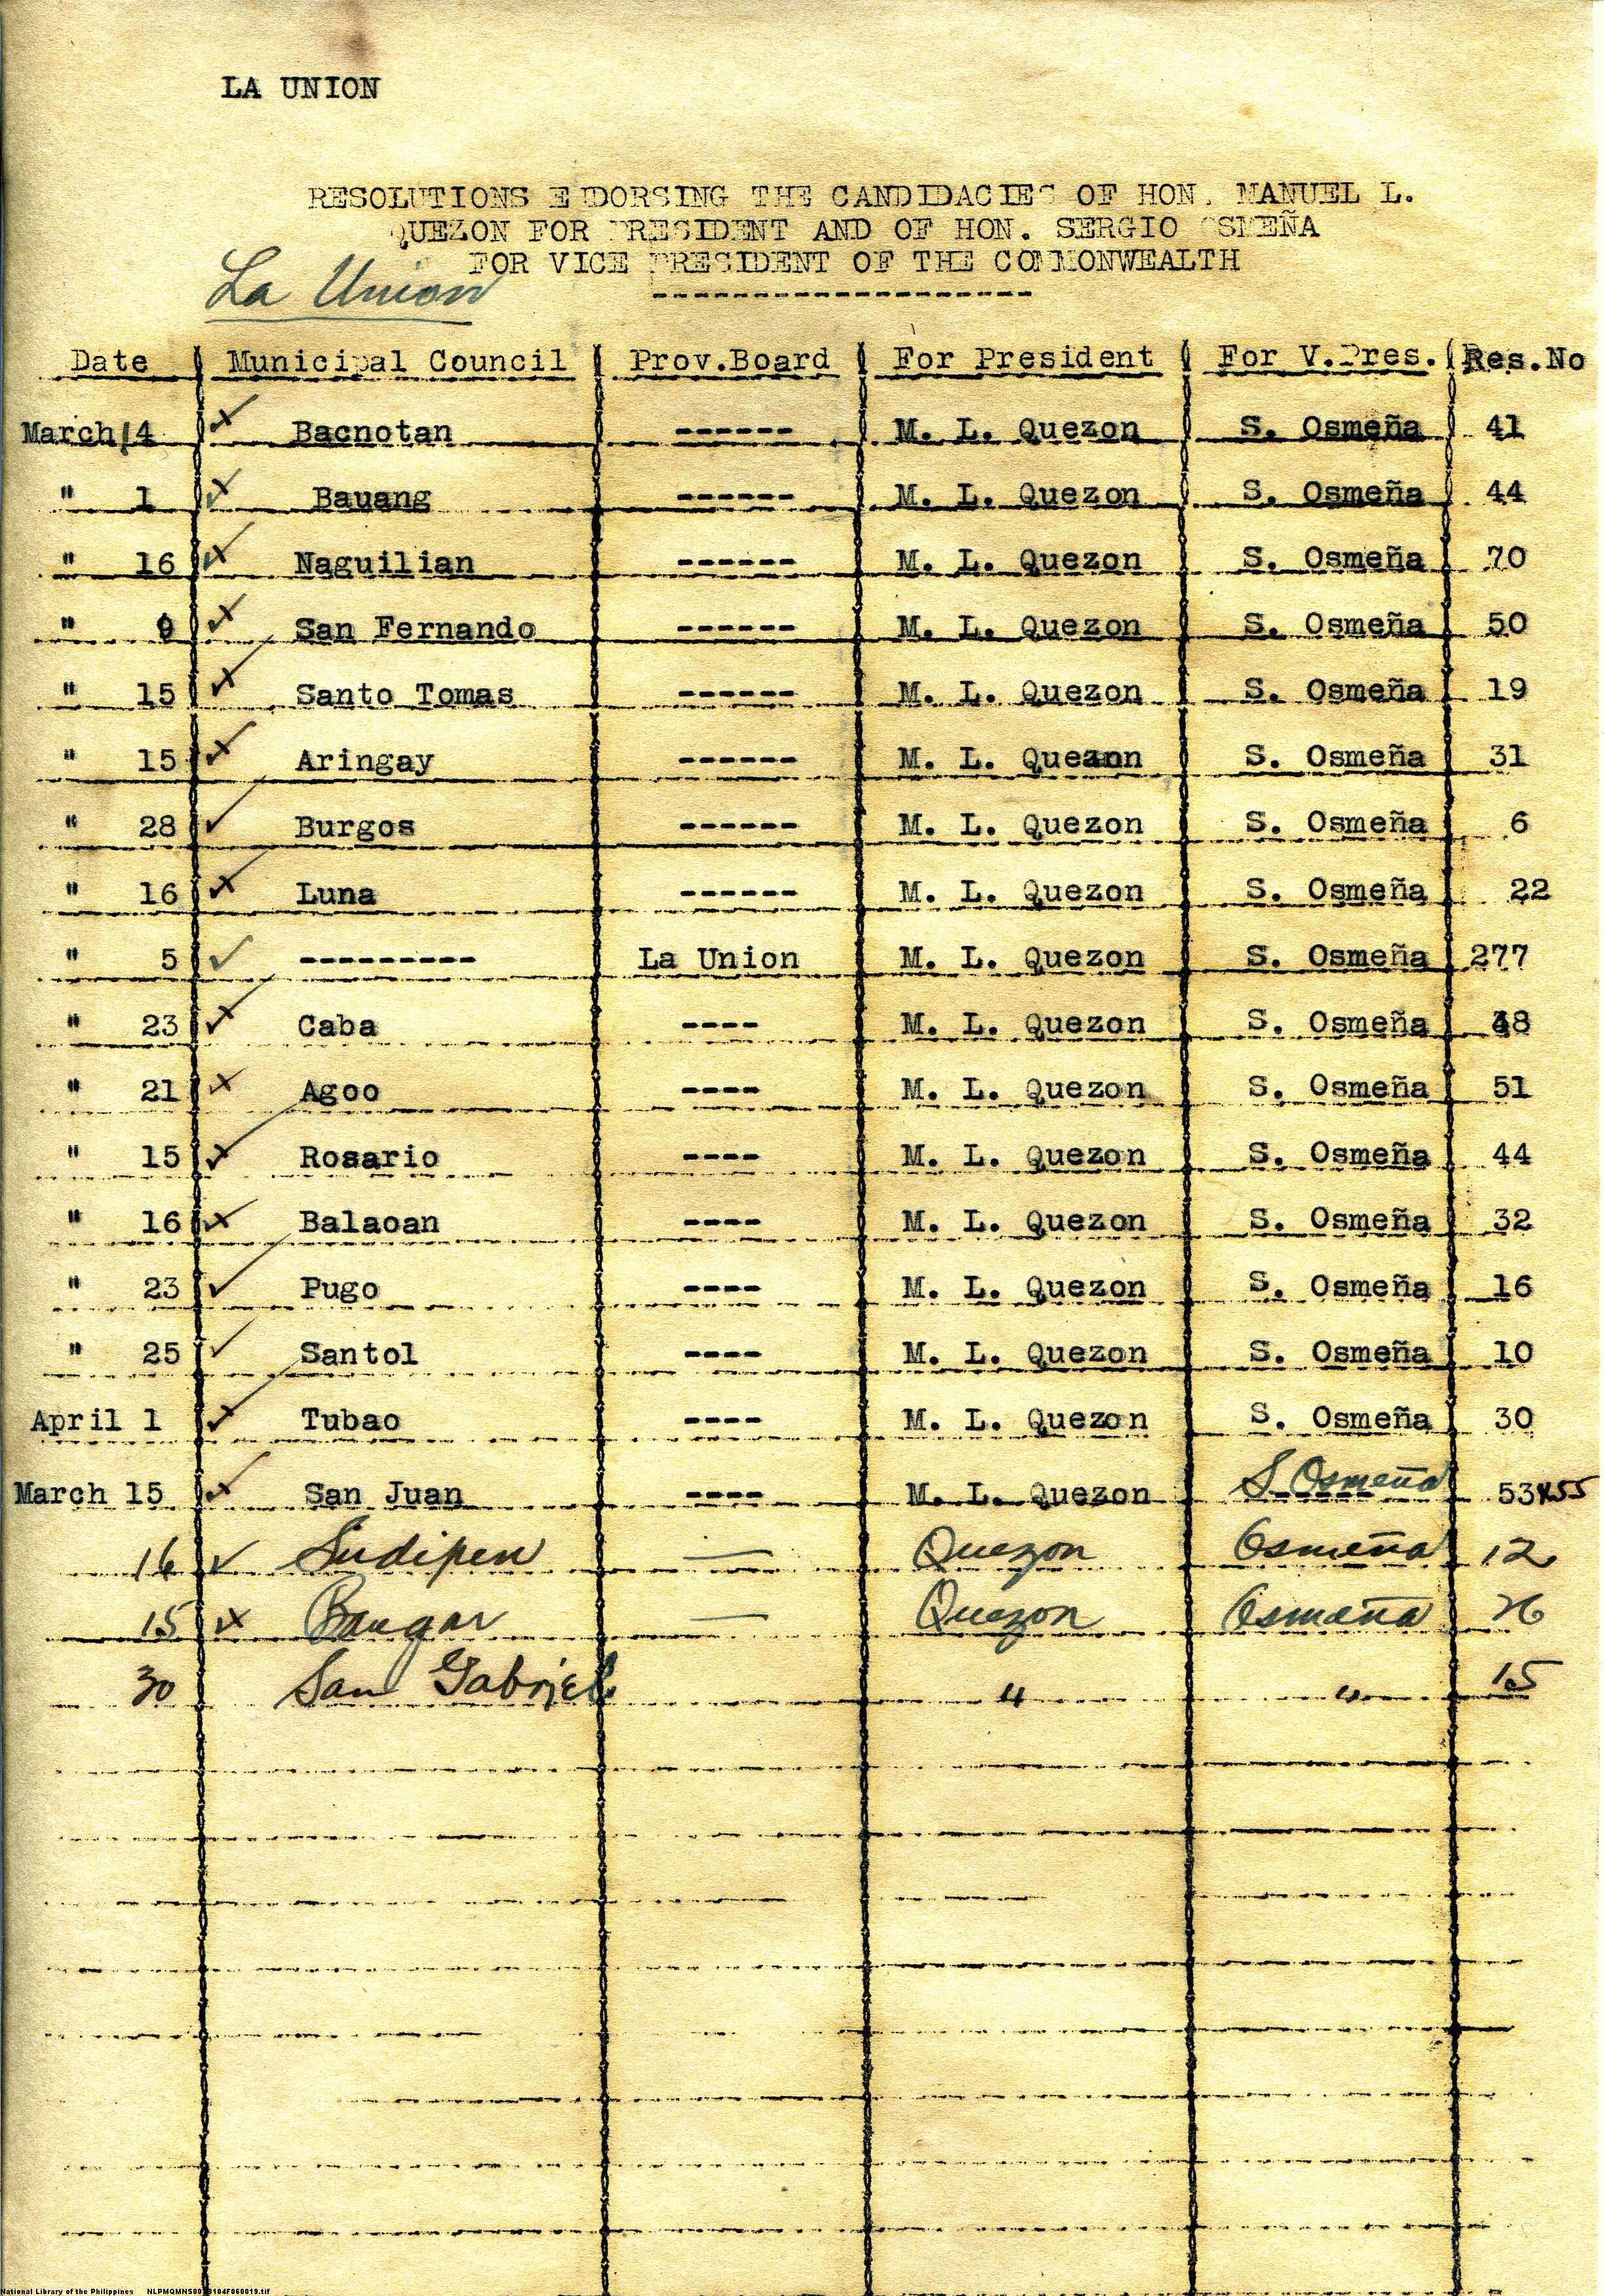 LA UNION
RESOLUTIONS ENDORSING THE CANDIDACIES OF HON. MANUEL L.
QUEZON FOR PRESIDENT AND OF HON. SERGIO OSMEÑA
FOR VICE PRESIDENT OF THE COMMONWEALTH
La Union
-------------------
Date Municipal Council Prov.Board For President For V.Pres. Res.No
March 14 Bacnotan ------ M. L. Quezon S. Osmeña 41
" 1 Bauang ------ M. L. Quezon S. Osmeña 44
" 16 Naguilian ------ M. L. Quezon S. Osmeña 70
" San Fernando ------ M. L. Quezon S. Osmeña 50
" 15 Santo Tomas ------ M. L. Quezon S. Osmeña 19
" 15 Aringay ------ M. L. S. Osmeña 31
" 28 Burgos ------ M. L. Quezon S. Osmeña 6
" 16 Luna ------ M. L. Quezon S. Osmeña 22
" 5 --------- La Union M. L. Quezon S. Osmeña 277
" 23 Caba ---- M. L. Quezon S. Osmeña
" 21 Agoo ---- M. L. Quezon S. Osmeña 51
" 15 Rosario ---- M. L. Quezon S. Osmeña 44
" 16 Balaoan ---- M. L. Quezon S. Osmeña 32
" 23 Pugo ---- M. L. Quezon S. Osmeña 16
" 25 Santol ---- M. L. Quezon S. Osmeña 10
April 1 Tubao ---- M. L. Quezon S. Osmeña 30
March 15 San Juan ---- M. L. Quezon S. Osmeña 53 55
16 Sudipen — Quezon Osmeña 12
15 Bangar — Quezon Osmeña 26
30 San Gabriel " " 15
National Library of the Philippines